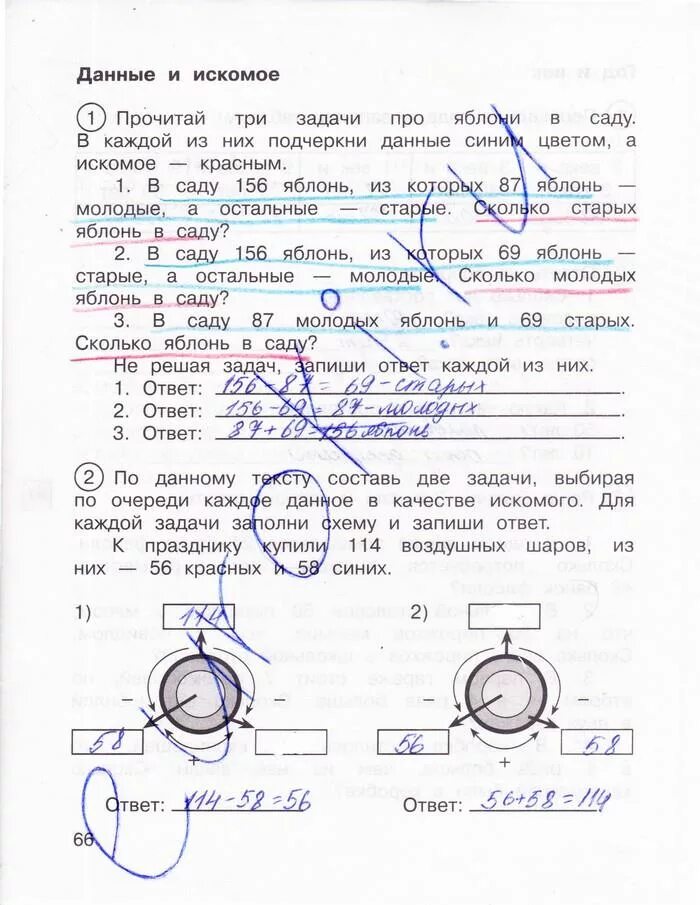 Данные и искомое
1 Прочитай три задачи про яблони в саду.
В каждой из них подчеркни данные синим цветом, а
искомое — красным.
1. В саду 156 яблонь, из которых 87 яблонь —
молодые, а остальные — старые. Сколько старых
яблонь в саду?
2. В саду 156 яблонь, из которых 69 яблонь —
старые, а остальные — молодые. Сколько молодых
яблонь в саду?
3. В саду 87 молодых яблонь и 69 старых.
Сколько яблонь в саду?
Не решая задач, запиши ответ каждой из них.
1. Ответ: 156-87= 69-старых
2. Ответ: 156-69=87-молодых
3. Ответ: 87+69=156 яблонь.
2 По данному тексту составь две задачи, выбирая
по очереди каждое данное в качестве искомого. Для
каждой задачи заполни схему и запиши ответ.
К празднику купили 114 воздушных шаров, из
них — 56 красных и 58 синих.
1) 114 2)
− − − −
58 56 58
+ +
Ответ: 114-58=56 Ответ: 56+58=114
66